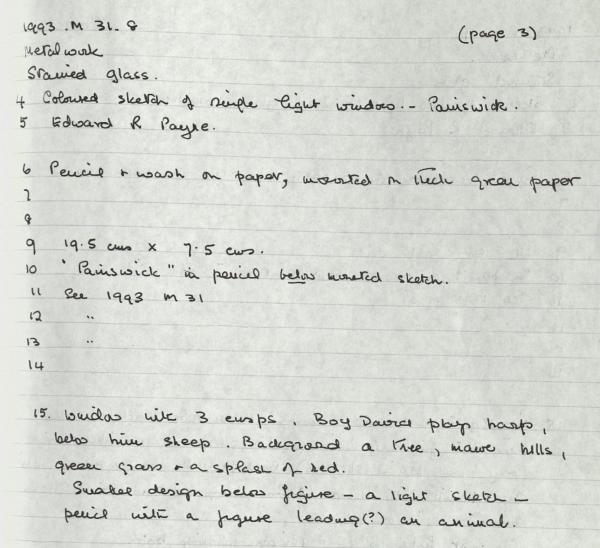 1993.M 31.8 (page 3)
Metalwork
Stained glass.
4 Coloured sketch of single light window. - Painswick.
5 Edward R Payne.
6 Pencil + wash on paper, mounted on thick green paper
7
8
9 19.5 cms x 7.5 cms.
10 "Painswick" in pencil below mounted sketch.
11 See 1993 M 31
12 "
13 "
14
15. Window with 3 cusps. Boy David plays harp,
below him sheep. Background a tree, mauve hills,
green grass + a splash of red.
Smaller design below figure - a light sketch -
pencil with a figure leading(?) an animal.